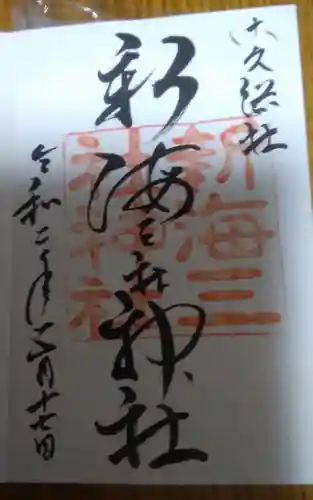 佐久総社
新海三社神社
新海三
社神社
令和二年八月十七日